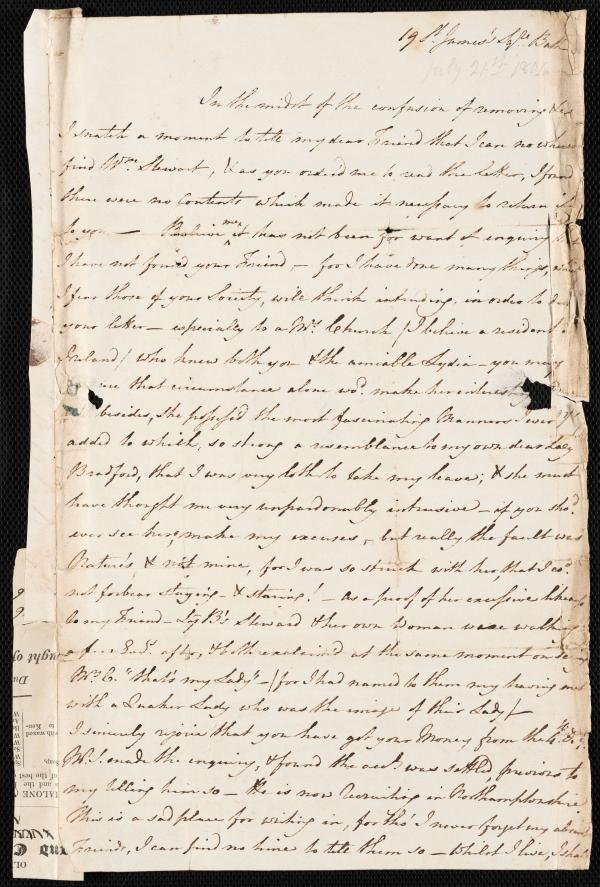 19 St. James's Sqre. Bath
July 21st 180
In the midst of the confusion of removing &c
I snatch a moment to tell my dear Friend that I can no where
find Wm. Stewart, & as you ordered me to read the Letter, I found
there were no Contents which made it necessary to return it
to you — Believe me it has not been for want of enquiry
I have not found your Friend, — for I have done many things,
I fear those of your Society, will think intruding, in order to
your letter — especially to a Mrs. Church / I believe a resident
Ireland / who knew both you & the amiable Lydia — you may
that circumstance alone wod. make her interesting
besides, she possess'd the most fascinating Manners I ever
added to which, so strong a resemblance to my own dear Lady
Bradford, that I was very loth to take my leave; & she must
have thought me very unpardonably intrusive — if you shod.
ever see her, make my excuses, — but really the fault was
Nature's & not mine, for I was so struck with her, that I cod.
not forbear staying — & staring! — As a proof of her excessive likeness
to my Friend — Ly Bs. Steward & her own Woman were walking
a few after, & both exclaim'd at the same moment on
Mrs. C. "that's my Lady" — / for I had named to them my having met
with a Quaker Lady who was the image of their Lady / —
I sincerely rejoice that you have got your Money from the
made the enquiry, & found the acct. was settled, previous to
my telling him so — He is now recruiting in Northamptonshire
This is a sad place for writing in, for tho' I never forget my absent
Friends, I can find no time to tell them so — Whilst I live, I shal
ught of
Du
of the best
MALONE